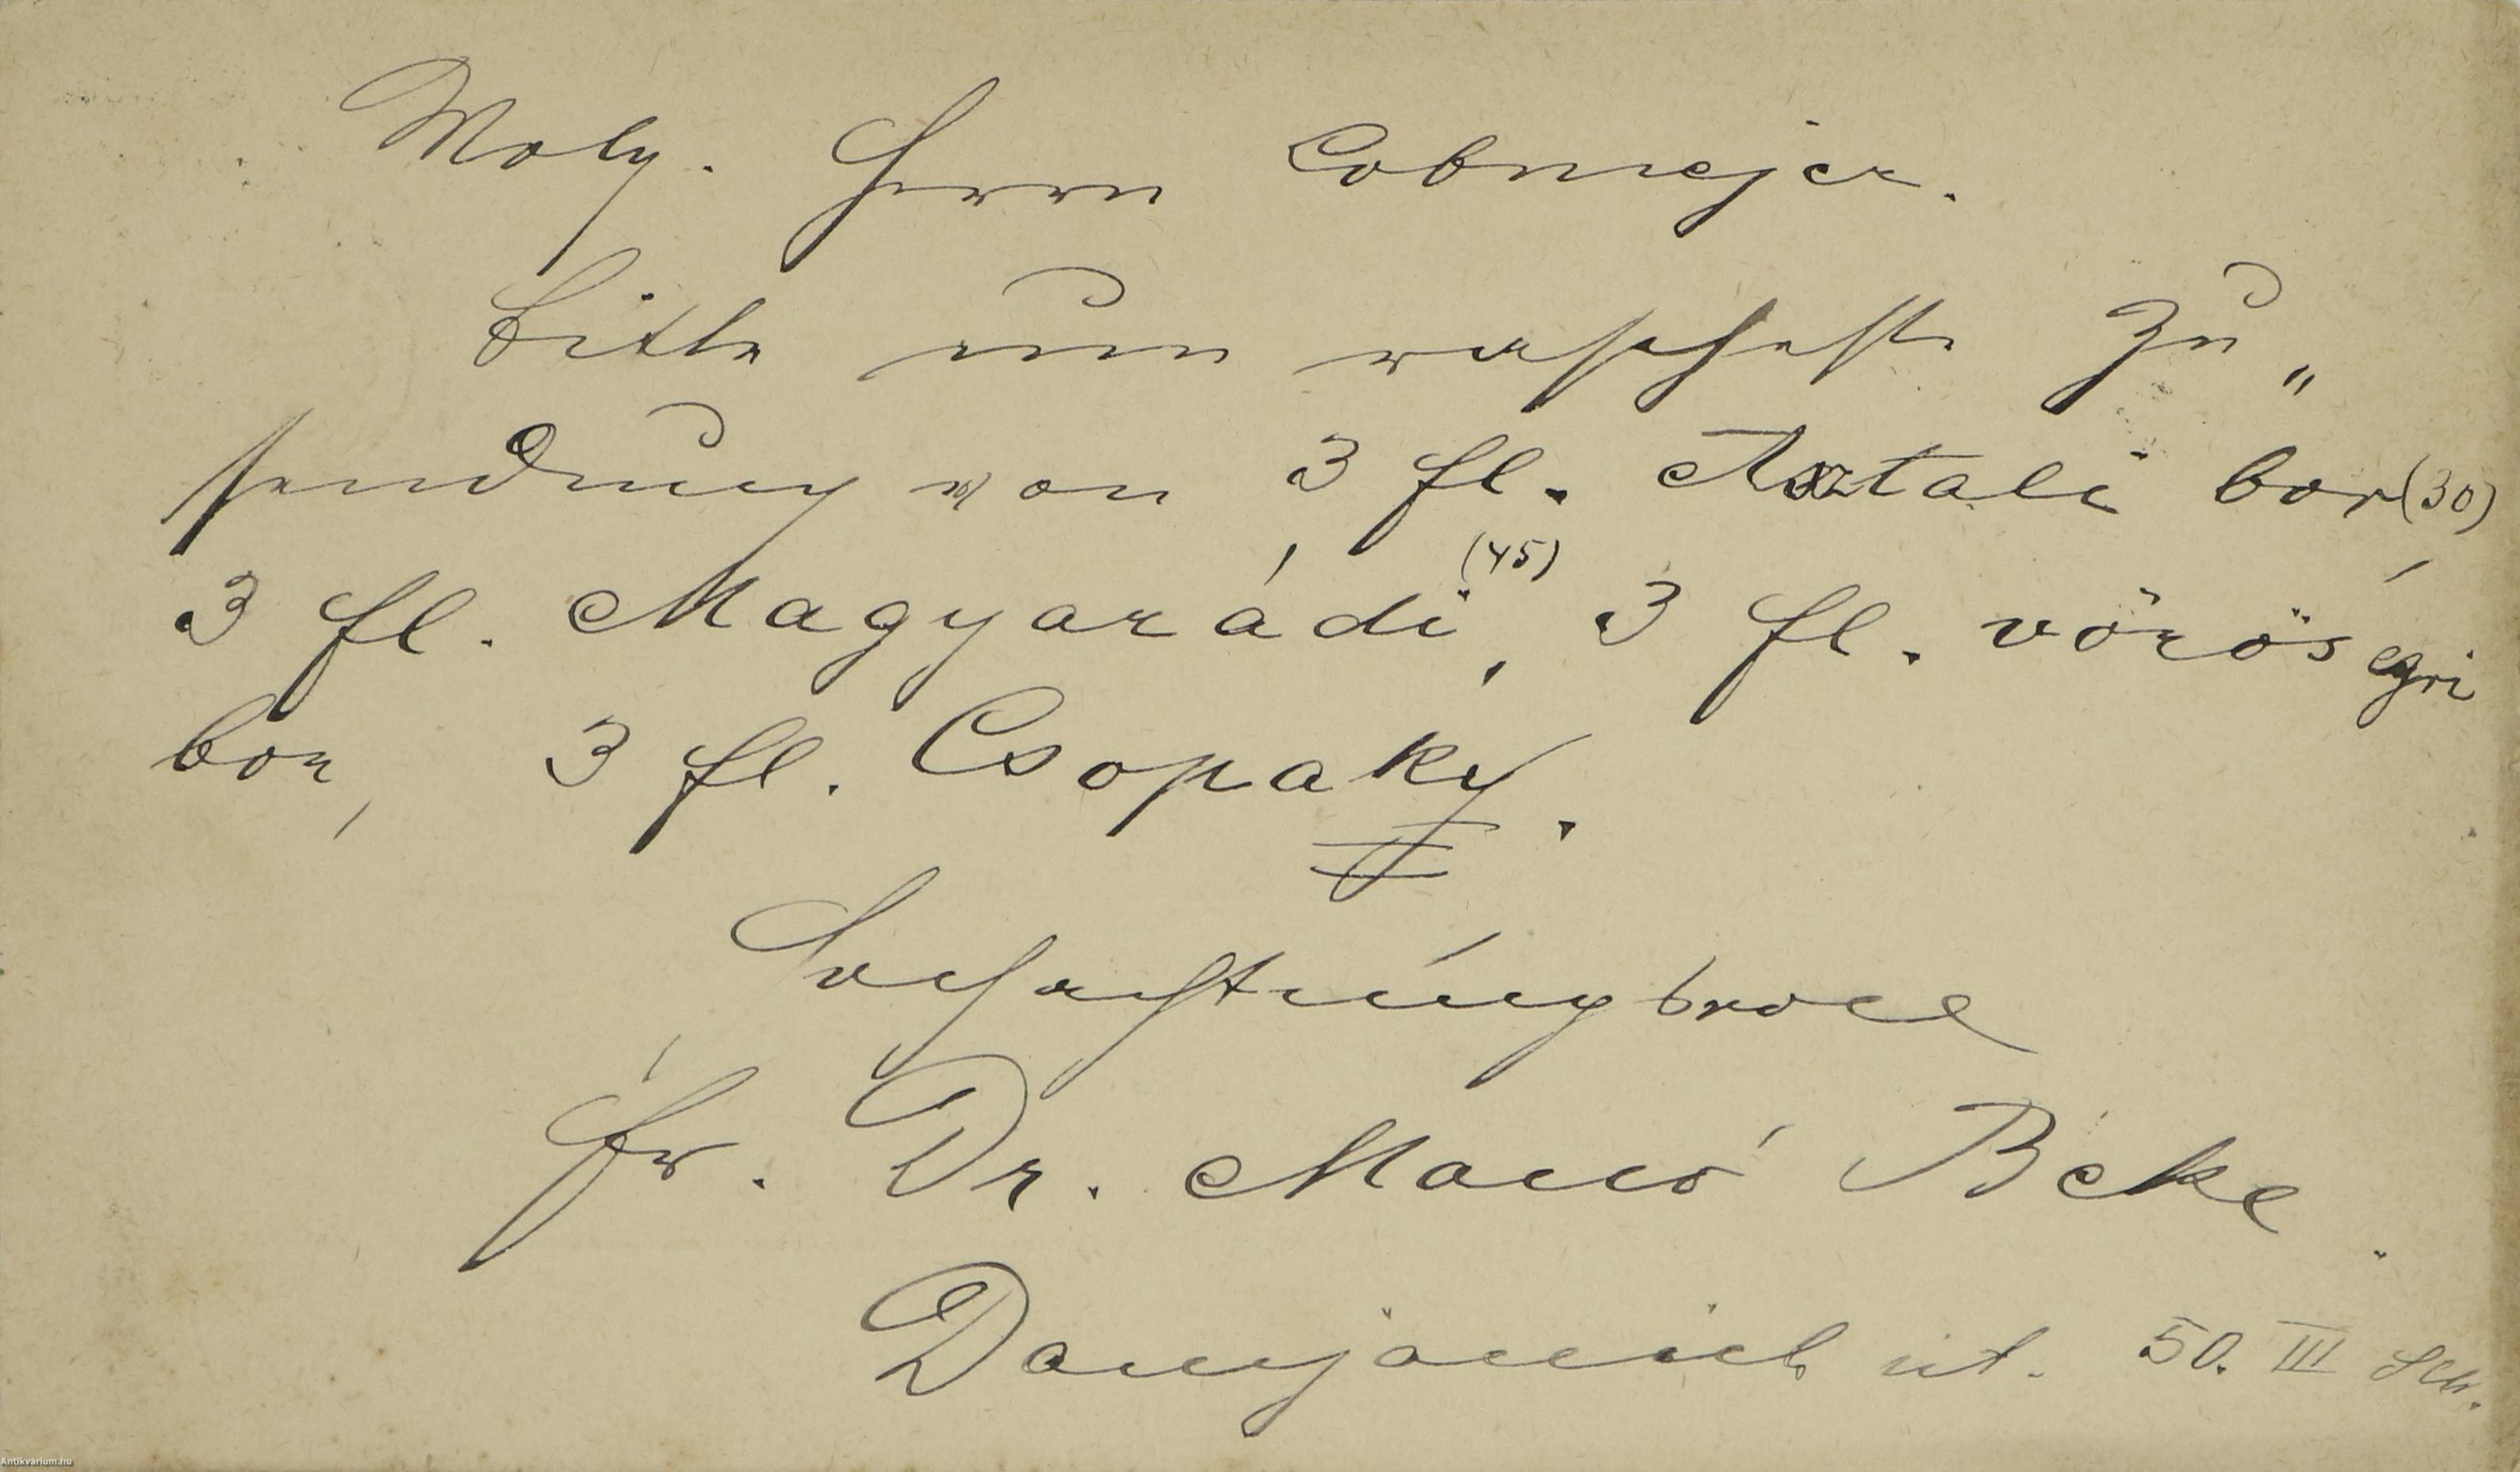 Wolg. Herrn Lobmejer.
bitte um rascheste Zu„
sendung von 3 fl. Asztali bor (30)
3 fl. Magyarádi (45), 3 fl. vörös egri
bor, 3 fl. Csopaky.
Hochachtungsvoll
Fr. Dr. Manó Beke.
Damjanich út. 50. III
Antikvarium.hu